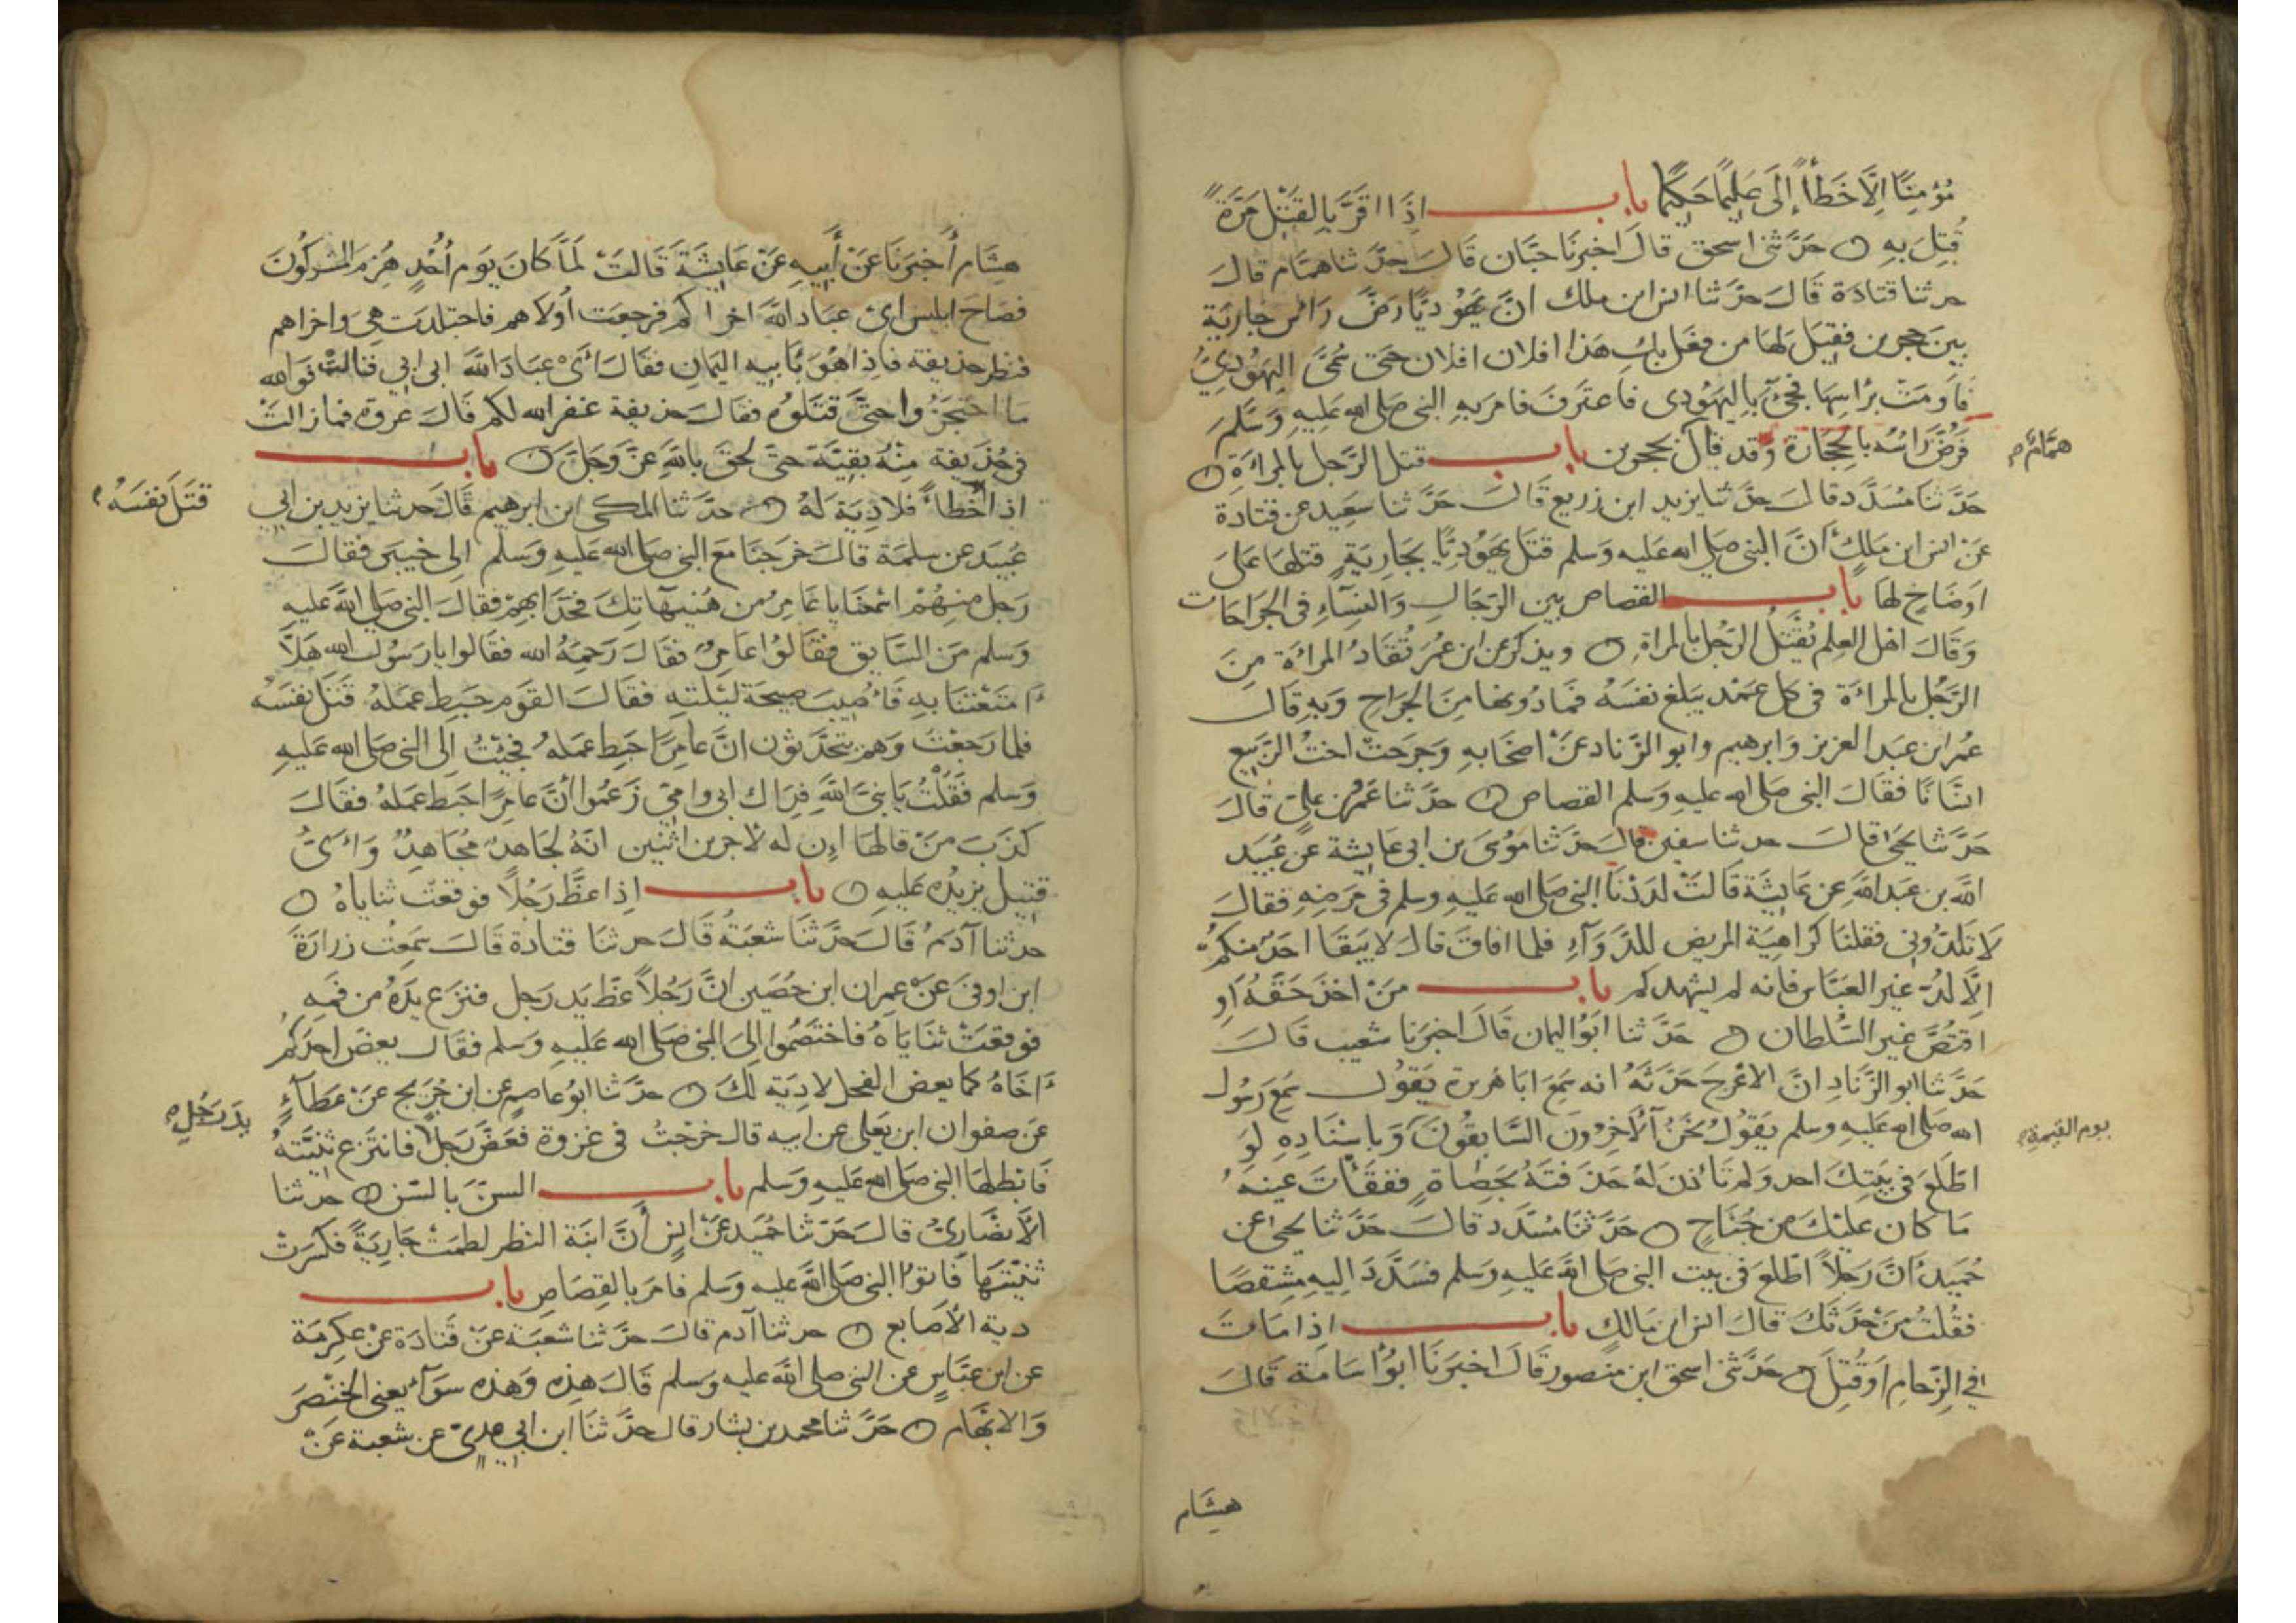 مُؤمِنًا اِلَّا خَطَأً إِلَى عَلِيمًا حَكِيمًا باب اذَا اقَرَّ بِالقَتْلِ مَرَّةً
قُتِلَ بِهِ حَدَّثنى اسحق قالَ اخبرنَا حَبَّان قَالَ حدَّثنا همَّام قالَ
حدثنا قتادَة قَالَ حدَّثنا انس ابن ملك انَّ يَهُوْديًّا رَضَّ رَاْس جَاريَة
بينَ حجرين فقِيل لهَا من فعَل بِكِ هَذا افلان افلان حتى سُمِّىَ اليَهُوْدِيُّ
فَاَومَتْ برأسِهَا فجئَ بِاليَهُودى فاعترَفَ فامَر بهِ النبى صلى الله عَليهِ وَسَلَّم
فَرُضَّ رَاسُه بالحِجَارَة وَقَد قالَ بحجرين باب قتل الرَّجل بالمرأةِ
همَّامٌ
حَدَّثنَا مُسَدَّد قالَ حدَّثنا يزيد ابن زريع قَالَ حَدَّثنا سَعِيد عن قتادَة
عَن انس ابن مَلك أنَّ النبى صلى الله عَليه وَسلم قتَل يَهُوديًّا بجَاريَةٍ قتلهَا عَلى
اوضَاحٍ لهَا باب القصاص بين الرِّجَال وَالنسَآءِ فى الجَرَاحَات
وَقَالَ اهْل العِلم يُقْتَلُ الرَّجُل بالمراة ويذكر عن ابن عُمَر تُقَادُ المرأة مِنَ
الرَّجُل بالمرأة فى كل عمَد يَبلغ نفسَهُ فمَا دُونهَا مِنَ الجَرَاحِ وَبه قال
عُمر ابن عَبد العزيز وَابرهيم وابو الزّناد عَنْ اصْحَابهِ وَجَرحَتْ اختُ الرَّبيع
انسَانًا فقَالَ النبى صَلى الله عليهِ وسَلم القصَاص حدَّثنا عَمرُ بن عَلىّ قالَ
حَدَّثنا يَحْيَى قالَ حدثنا سفين قالَ حدَّثنا مُوسَى بن ابى عَايشة عَن عُبَيد
اللَّه بن عَبد اللهِ عن عَايشَة قالتْ لدَدْنَا النبى صَلى الله عَليهِ وسلم فى مَرَضِهِ فقالَ
لَا تَلدُّونى فقلنَا كرَاهيَة المريض للدَّوَآءِ فلما افاقَ قالَ لا يَبقَا احَدٌ منكمْ
الَّا لُدَّ غيرَ العَبَّاس فانه لم يَشهدكم باب مَنْ اخذ حَقَّهُ اَوِ
اقتَصَّ غير السُّلطان حَدَّثنا ابوُ اليمَان قَالَ اخبَرنا شعَيب قَالَ
حَدَّثنا ابو الزِّنَادِ انَّ الاعْرجَ حَدَّثهُ انه سَمِعَ ابَا هُريرة يَقوُل سَمِعَ رَسُول
الله صَلى الله عَليهِ وسلم يَقوُلُ نحَنُ الآخِرُونَ السَّابقوُنَ وَباسْنَادِهِ لَو
يوم القيمة
اطَّلعَ فى بيتِكَ احد وَلم تَأذن لَهُ خذَفتَهُ بحَصَاةٍ ففقَأتَ عَينَهُ
مَا كان عليْكَ من جُنَاحٍ حَدَّثنَا مُسَدَّد قالَ حَدَّثنا يحيى عن
حُمَيد انَّ رَجلاً اطَّلعَ فى بيت النبى صَلى اللهَ عَليهِ وَسَلم فسَدَّدَ اليهِ مِشقَصًا
فقُلتُ مَنْ حَدَّثكَ قالَ انس ابن مَالكٍ باب اذَا مَاتَ
فِي الزِّحام اَو قُتِلَ حَدَّثنى اسحق ابن منصور قَالَ اخبَرنَا ابوُ اسَامَة قَالَ
هشَام
هشَام أخبَرنَا عَن أَبيهِ عَنْ عَايشَةَ قَالتْ لَمَّا كَانَ يَوم أُحُدٍ هُزِمَ المشركُونَ
فصَاحَ ابليس اىْ عبَادَ اللهَ اخراكم فرجعَت أولاهم فاجتلدَت هِيَ وَاخراهم
فنظر حذيفة فاِذا هوَ بأبيه اليمَان فقَالَ أىْ عبَادَ اللهَ ابى ابي قالتْ فوَالله
مَا احتجَزُوا حتَّى قتَلوُهُ فقالَ حذيفة غفر الله لكم قالَ عروة فمَا زالتْ
فى حُذيفة مِنْهُ بقيَّة حَتى لحقَ بالله عَزَّ وَجلَّ باب
اذا أخطأ فلا دِيَة لَهُ حدَّثنا المكى ابن ابرهيم قَالَ حدثنا يزيد بن ابي
قتَلَ نفسَهُ
عُبَيد عن سلمَة قالَ خرَجنَا مَعَ النبى صلى الله عَليهِ وَسَلم الى خيبَر فقالَ
رَجل منهُمْ اسْمعْنَا يا عَامِرُ من هُنَيهَاتِكَ فحَدَا بهِمْ فقالَ النبى صلى اللهَ عليهِ
وَسَلم مَن السَّايق فقَالوُا عَامِرٌ فقَالَ رَحِمَهُ الله فقالوا يا رَسُولَ الله هَلاَّ
أَمتَعْتنَا بهِ فَأُصِيبَ صبيحَة ليْلتهِ فقالَ القوَم حَبِط عمَلهُ قتَل نفسَه
فلما رَجَعْتُ وَهم يتحَدَّثوُن انَّ عامِرًا حَبِط عمَلهُ فجئتُ الى النبى صَلى الله عَليهِ
وَسَلم فَقُلْتُ يَا نبىَّ اللهَّ فدَاك ابى وامىّ زَعَمُوا أنَّ عَامِرًا حبَط عَملهُ فقالَ
كَذبَ مَنْ قالهَا اِن له لاجرين اثنَين انّهُ لجَاهدٌ مُجَاهِدٌ وَاَىُّ
قتِيل يزيدُهُ عَليهِ باب اِذا عظَّ رَجُلًا فوقعَتْ ثنايَاهُ
حدثنا آدَمُ قَالَ حَدَّثنَا شعبَةُ قَالَ حدثنَا قتادَة قَالَ سَمِعْتُ زرارَة
ابن اوفى عَنْ عِمران ابن حُصَين انَّ رَجُلاً عَظَّ يَد رَجل فنزع يَدَهُ من فَمِهِ
فوقعَتْ ثنَايَاهُ فاختَصَمُوا اِلى النبى صَلى الله عَليهِ وَسَلم فقَالَ يعضّ احَدكُمْ
أخَاهُ كمَا يعض الفحل لا دِيَة لكَ حدَّثنا ابوُ عاصِم عن ابن جُرَيج عَنْ عَطآءٍ
يدَ رَجُلٍ
عَن صفوان ابن يَعلى عن ابيه قالَ خرَجْتُ فى غزوة فعَضَّ رَجلٌ فانتزع ثنيَّتهُ
فَابْطلهَا النبى صَلى الله عَليهِ وَسَلم باب السنِّ بالسّن حدثنا
الأنصَارِىُّ قالَ حَدّثنا حُمَيد عَنْ انسٍ أنَّ ابنَة النضر لطمَتْ جَاريَةً فكَسَرَتْ
ثنيَّتَهَا فَاتوُا النبى صَلى اللهَ عَليه وَسلم فامَر بالقِصَاصِ باب
دية الاَصَابع حدثنا آدم قالَ حدَّثنا شعبَة عَنْ قتادَة عَنْ عِكرمَة
عن ابن عبَّاسٍ عن النبى صلى اللهَ عليه وسلم قَالَ هذِهِ وَهذه سوَآء يعنى الخنْصَرَ
وَالابهَام حَدَّثنا محمد بن بشار قالَ حدَّثنَا ابن ابي عدىّ عن شعبة عَنْ